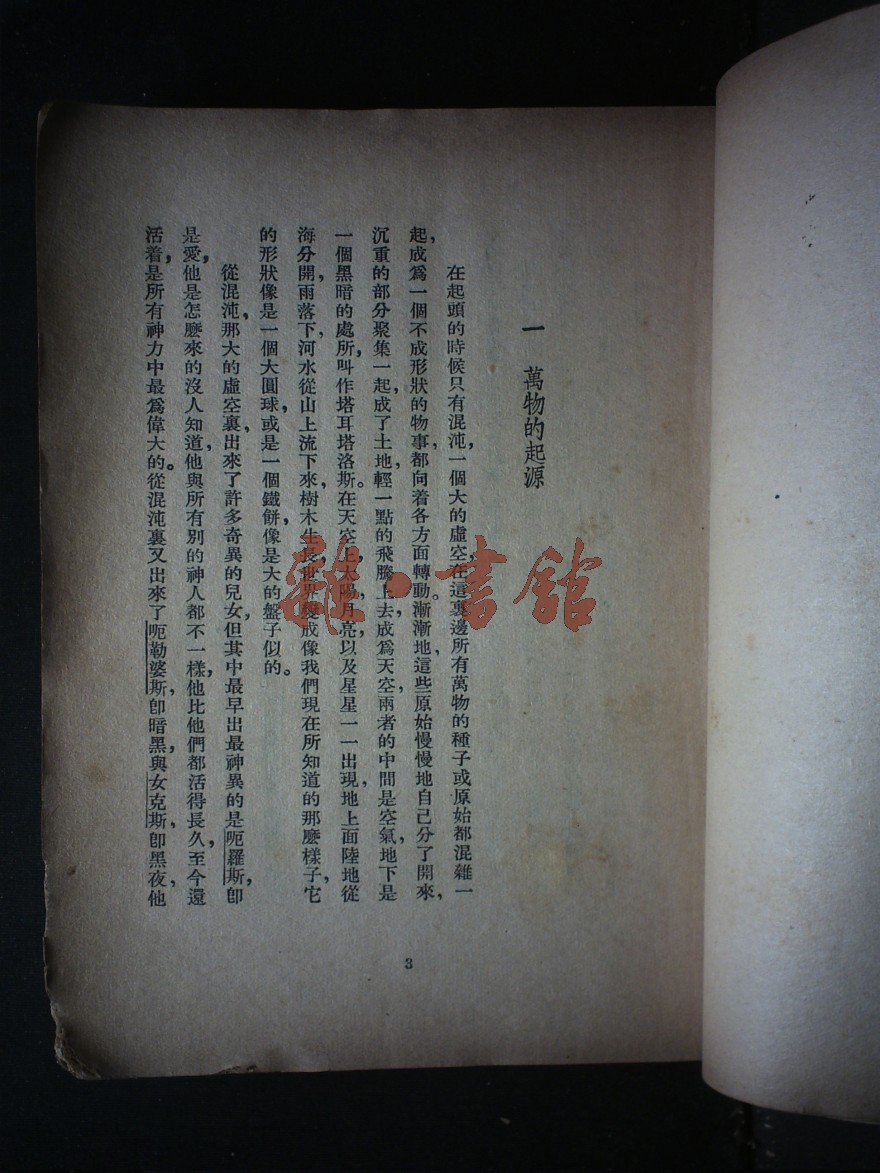 一　萬物的起源
在起頭的時候只有混沌，一個大的虛空在這裏邊所有萬物的種子或原始都混雜一
起，成爲一個不成形狀的物事，都向着各方面轉動。漸漸地，這些原始慢慢地自己分了開來，
沉重的部分聚集一起，成了土地，輕一點的飛騰上去，成爲天空，兩者的中間是空氣，地下是
一個黑暗的處所，叫作塔耳塔洛斯。在天空上，太陽月亮，以及星星一一出現，地上面陸地從
海分開，雨落下，河水從山上流下來，樹木生長，世界變成像我們現在所知道的那麼樣子，它
的形狀像是一個大圓球，或是一個鐵餅，像是大的盤子似的。
從混沌，那大的虛空裏，出來了許多奇異的兒女，但其中最早出最神異的是呃羅斯，卽
是愛，他是怎麽來的沒人知道，他與所有別的神人都不一樣，他比他們都活得長久，至今還
活着，是所有神力中最爲偉大的。從混沌裏又出來了呃勒婆斯，卽暗黑，與女克斯，卽黑夜，他
3
雜·書館